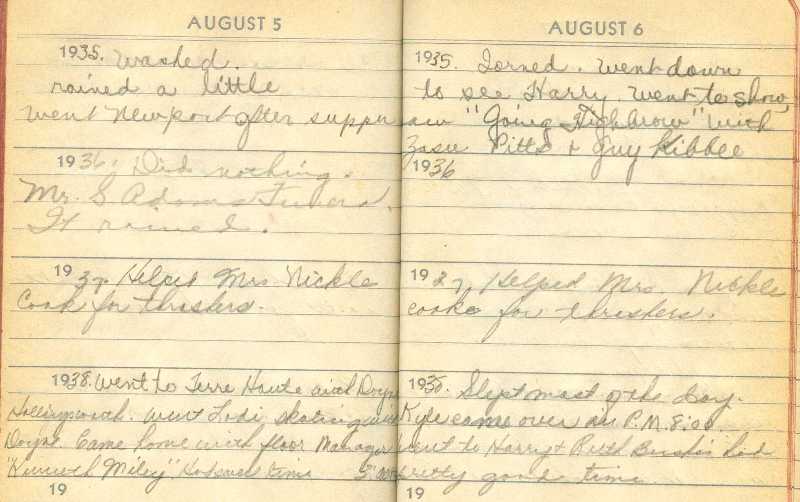 AUGUST 5
1935. Washed.
rained a little
went Newport after supper
1936. Did nothing.
Mr. S Adams
It rained.
1937. Helped Mrs Nickle
Cook for thrashers.
1938. Went to Terre Haute with Doyne
Hollingsworth. Went Lodi skating
Doyne. Came home with floor Manager
"Kenneth Miley" time
19
AUGUST 6
1935. Iorned. Went down
to see Harry. Went to show,
saw "Going Highbrow" with
Zasu Pitts & Guy Kibbee
1936
1937, Helped Mrs. Nickle
cook for thrashers.
1938. Slept most of the day.
Kyle came over P.M. 8:00
went to Harry & Ruth had
pretty good time.
19